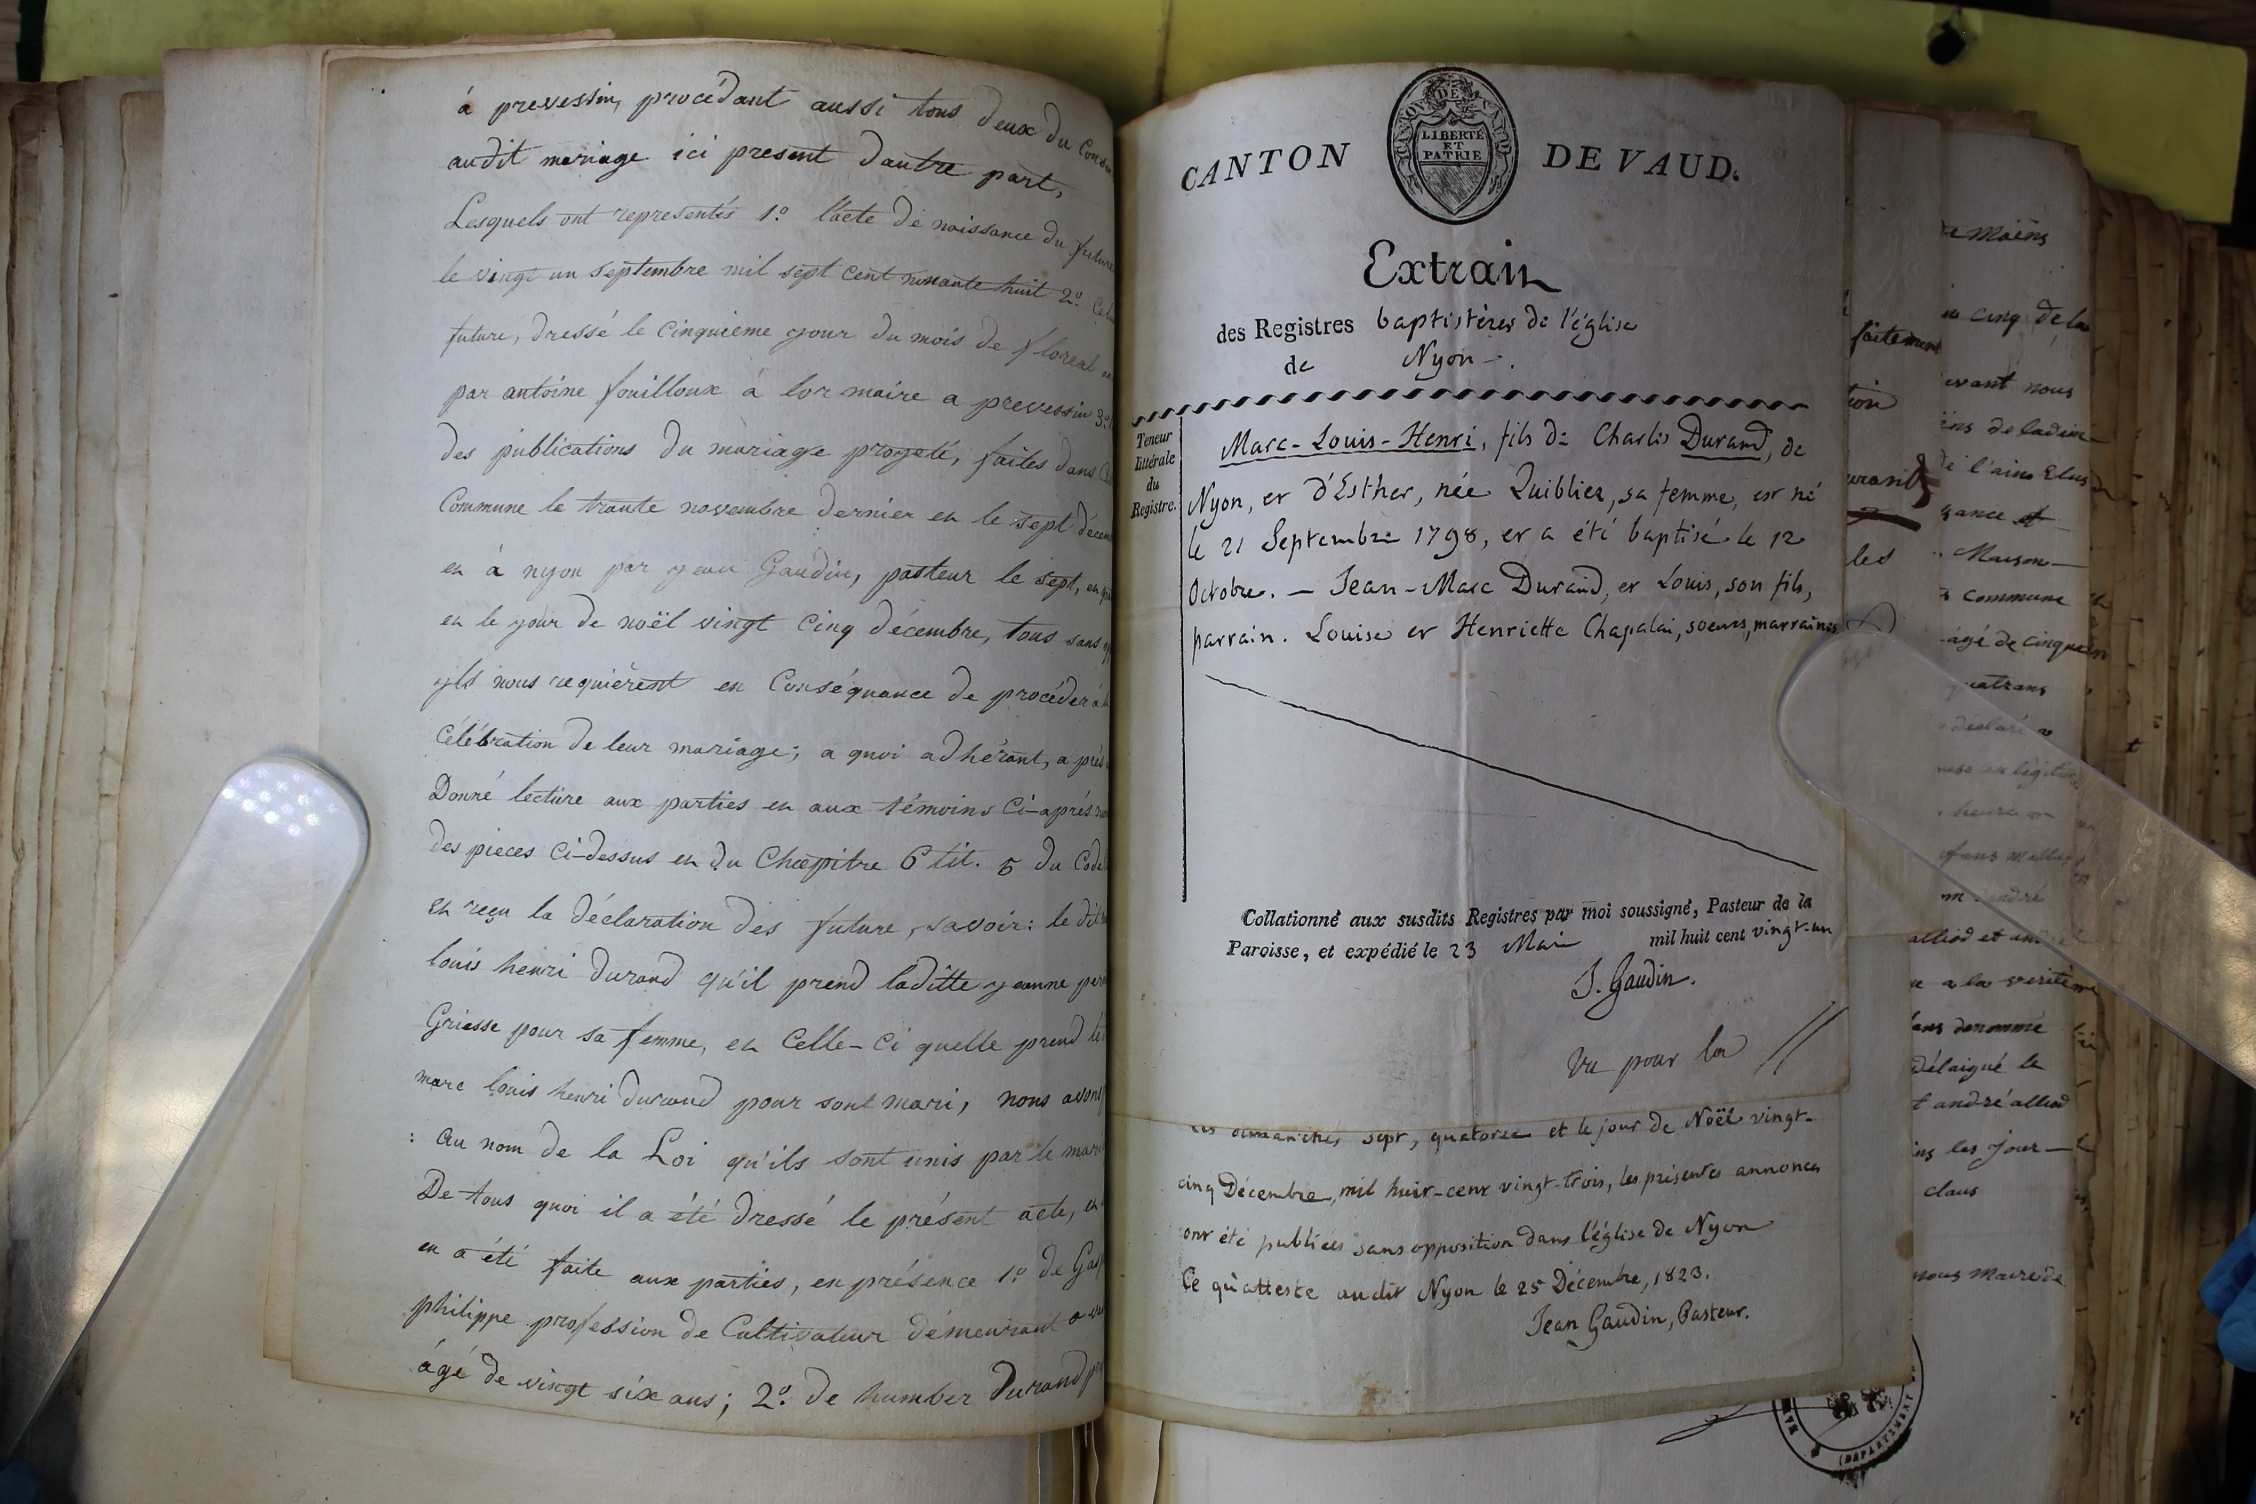 á prevessin, procédant aussi tous deux du
audit mariage ici present dautre part,
Lesquels ont representés 1.º lacte de naissance du future
le vingt un septembre mil sept cent nonante huit 2.º
future, dressé le cinquieme jour du mois de floreal
par antoine fouilloux á lor maire a prevessin 3.º
des publications du mariage projeté, faites dans
Commune le trante novembre dernier et le sept
et à nyon par jean Gaudin, pasteur le sept,
et le jour de noël vingt cinq décembre, tous sans
ils nous requièrent en Conséquance de procéder à
Célébration de leur mariage; a quoi adhérant, a prés
Donné lecture aux parties et aux témoins Ci-aprés
des pieces Ci-dessus et du Chapitre 6 tit. 5 du Code
et reçu la déclaration des future, savoir: le dit
louis henri durand qu'il prend laditte jeanne
Griesse pour sa femme, et Celle-Ci quelle prend
marc louis henri durand pour sont mari, nous avons
: Au nom de la Loi qu'ils sont unis par le
De tous quoi il a été dressé le présent acte,
en a été faite aux parties, en présence 1.º de
philippe profession de Cultivateur démeurant a
âgé de vingt six ans; 2.º de humber Durand
CANTON DE VAUD
LIBERTÉ
ET
PATRIE
CANTON DE VAUD.
Extrait
des Registres baptistères de l'église
de Nyon.
Teneur
littérale
du
Registre.
Marc-Louis-Henri, fils de Charles Durand, de
Nyon, et d'Esther, née Quiblier, sa femme, est né
le 21 Septembre 1798, et a été baptisé le 12
Octobre. — Jean-Marc Durand, et Louis, son fils,
parrain. Louise et Henriette Chapalai, soeurs, marraines
Collationné aux susdits Registres par moi soussigné, Pasteur de la
Paroisse, et expédié le 23 Mai mil huit cent vingt-un
J. Gaudin.
Vu pour la
les dimanches, sept, quatorze et le jour de Noël vingt-
cinq Décembre, mil huit-cent vingt-trois, les présentes annonces
ont été publiées sans opposition dans l'église de Nyon
Ce qu'atteste audit Nyon le 25 Décembre, 1823.
Jean Gaudin, Pasteur.
faitement
tion
les
moins
cinq de la
evant nous
de l'ain
Maison
commune
âgé de
alliod et
a la verité
denommé
délaigué le
t andré alliod
les jour
claus
nous Maire de